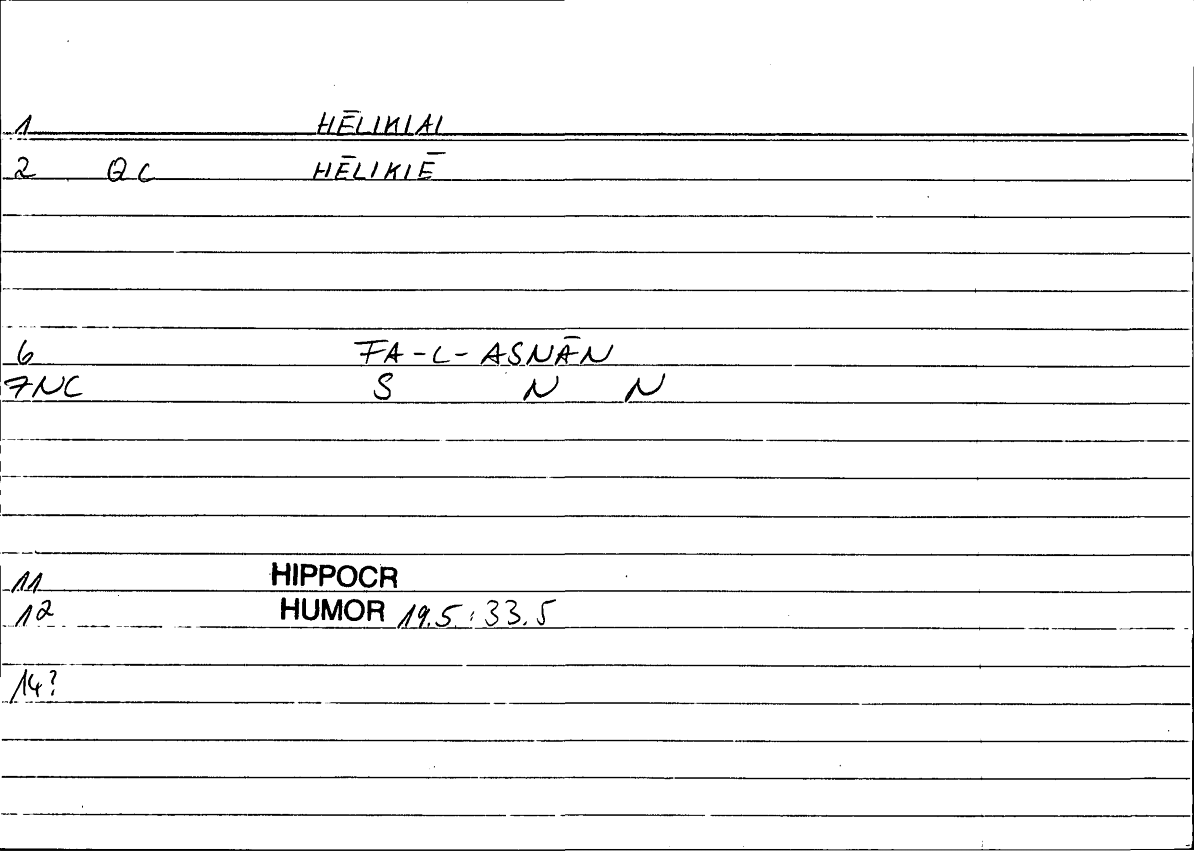 1 HĒLIKIAI
2 QC HĒLIKIĒ
6 FA-L-ASNĀN
7NC S N N
11 HIPPOCR
12 HUMOR 19.5:33.5
14?